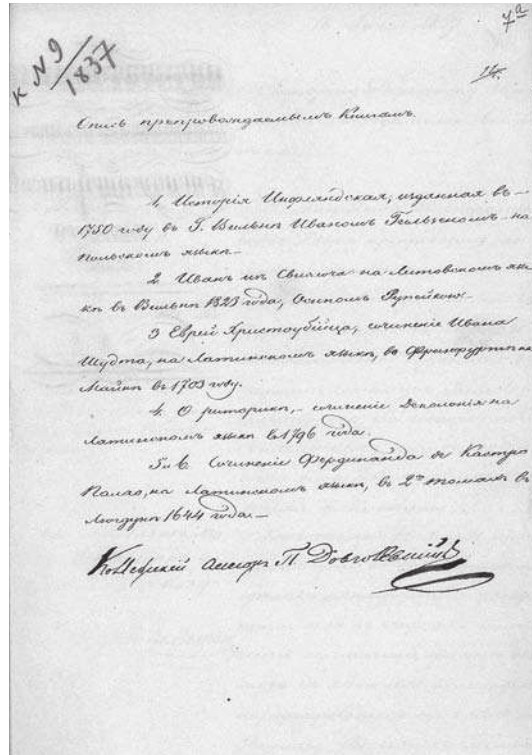 7ª
к № 9/1837
14.
Опись препровождаемымъ Книгамъ.
1. Исторія Инфляндская, изданная въ
1750 году въ Г. Вильнѣ Иваномъ Гильзеномъ на
польскомъ языкѣ.
2 Иванъ изъ Свислоча на Литовскомъ язы-
кѣ въ Вильнѣ 1823 года, Осипомъ Рупейкою.
3 Еврей Христоубійца, сочиненіе Ивана
Шудта, на Латинскомъ языкѣ, во Франкфуртѣ на
Майнѣ въ 1703 году.
4. О риторикѣ, – сочиненіе Деколонія на
Латинскомъ языкѣ 1796 года.
5 и 6. Сочиненіе Фердинанда де Кастро
Палао, на Латинскомъ языкѣ, въ 2хъ томахъ въ
Люгдунѣ 1644 года. —
Коллежскій Ассесоръ П Довголлевскій